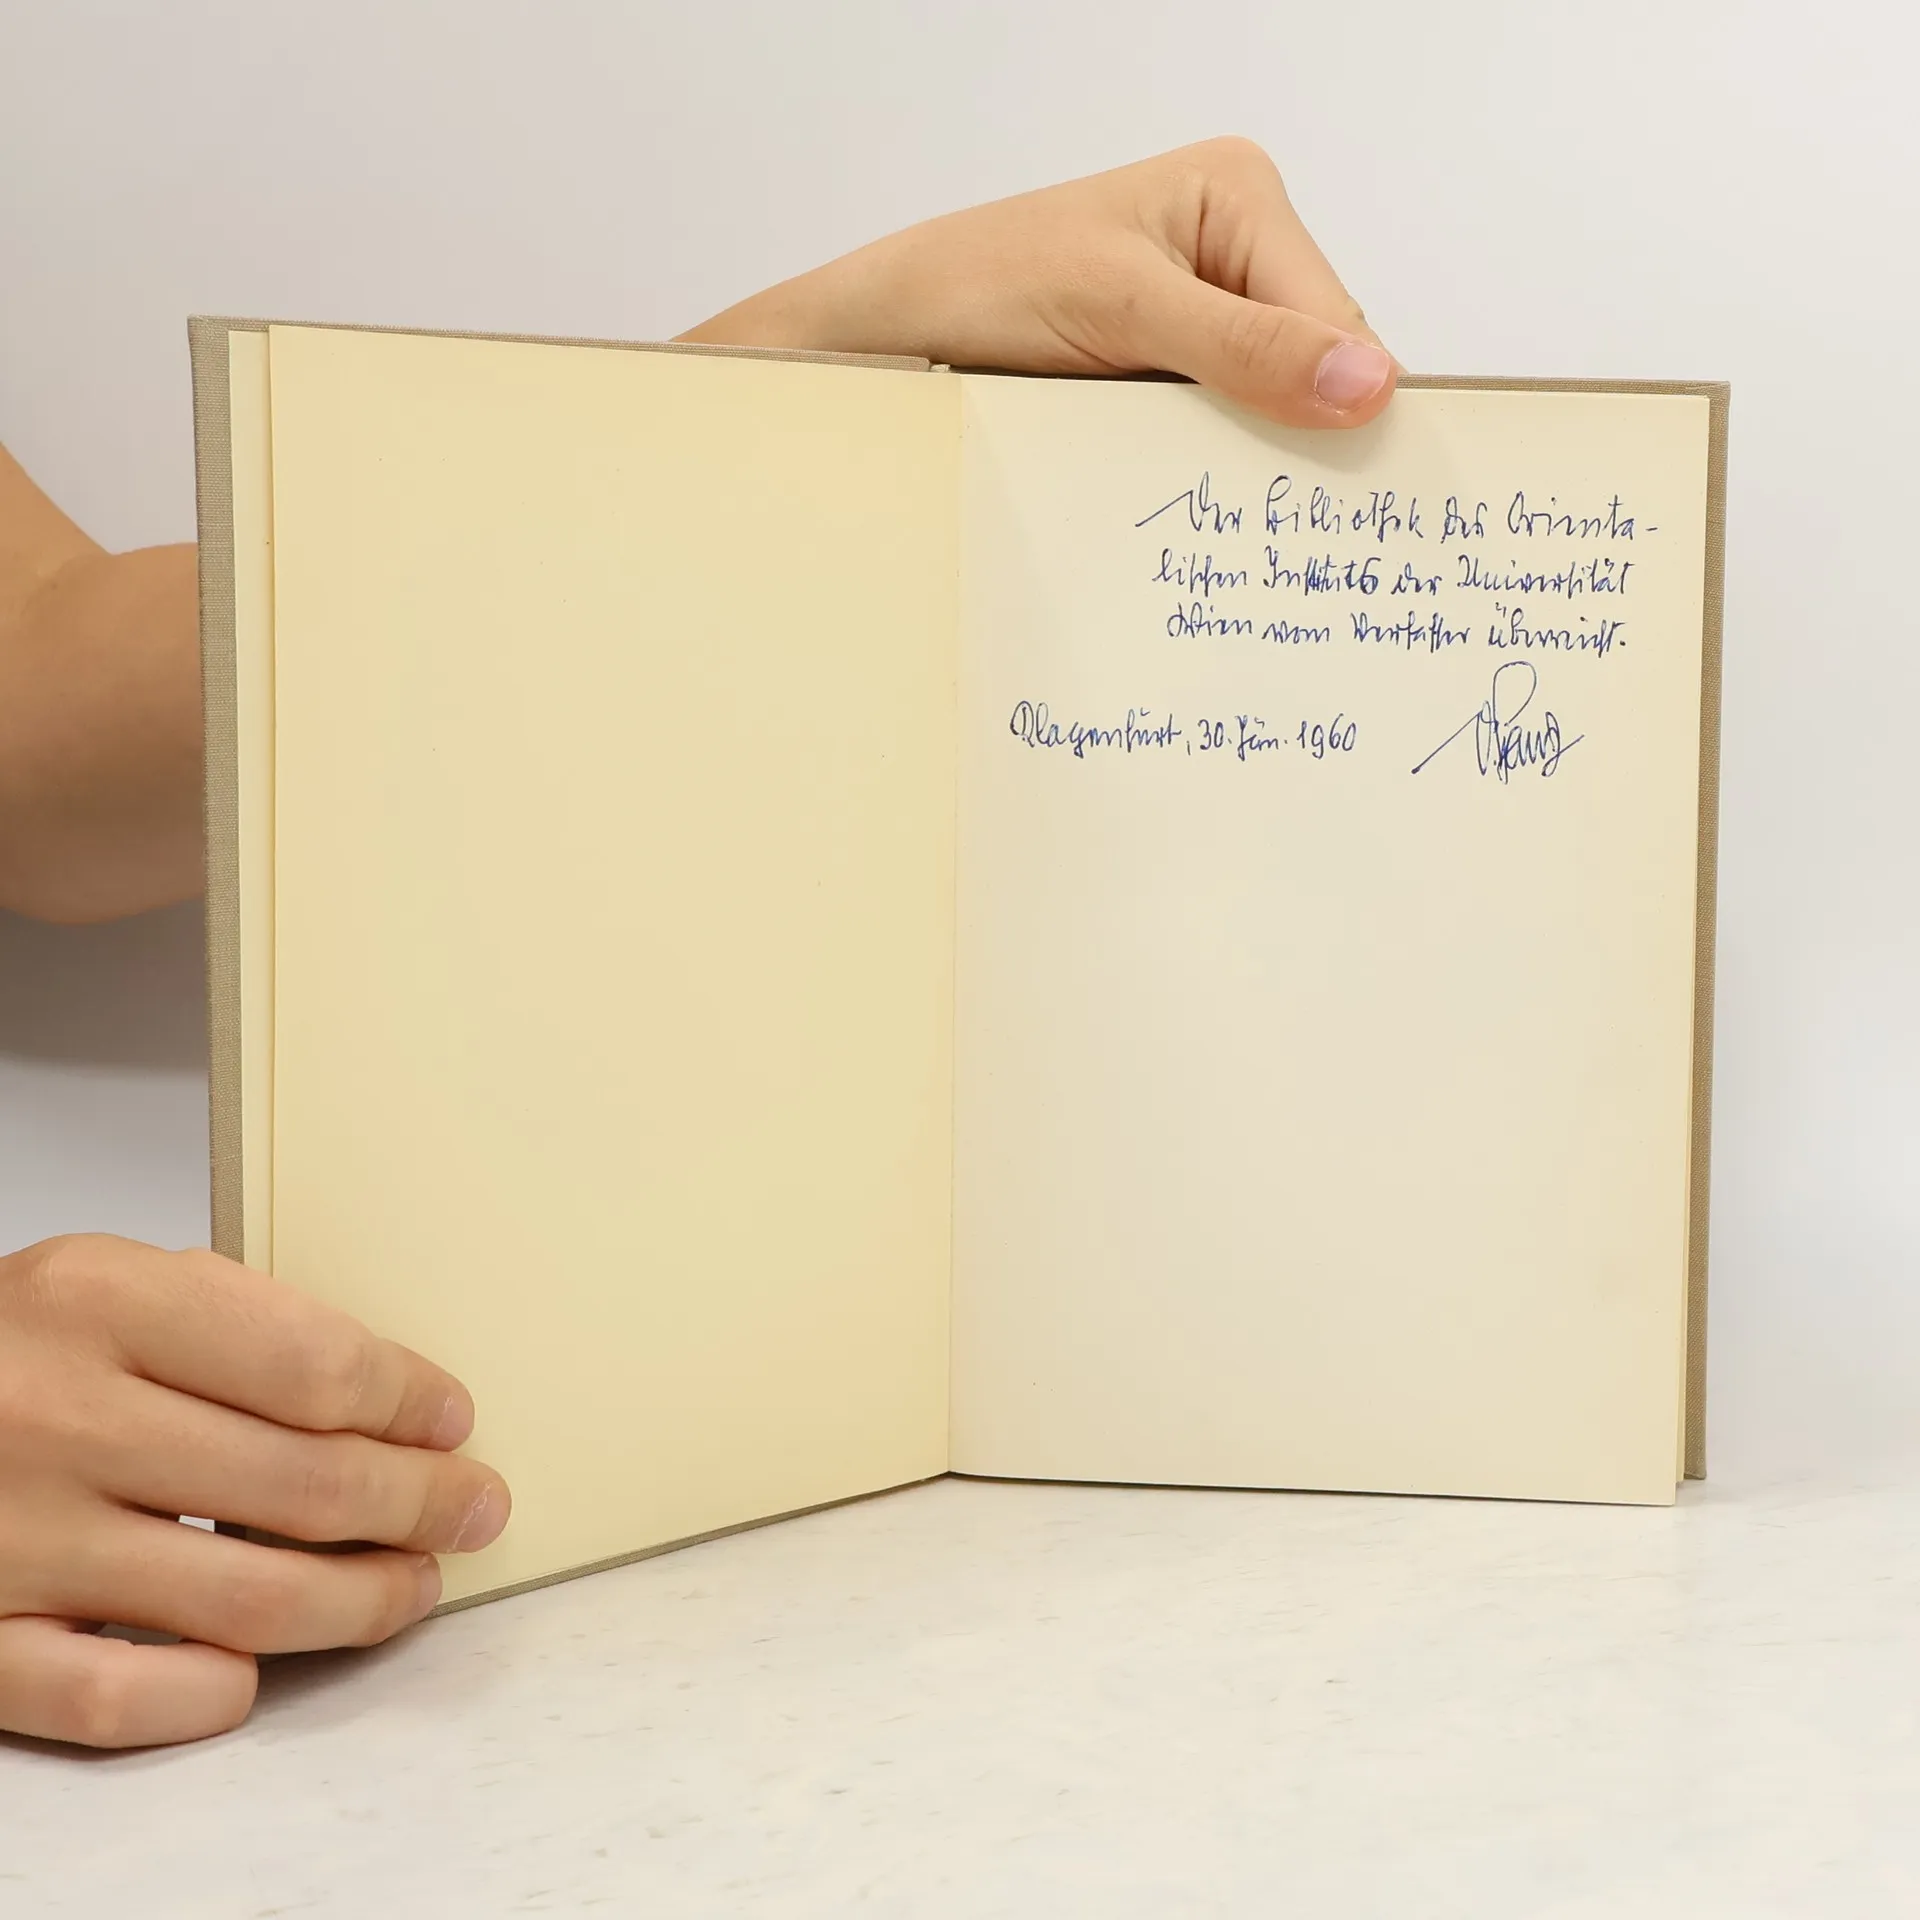 Der Bibliothek des Orienta-
lischen Instituts der Universität
Wien vom Verfasser überreicht.
Klagenfurt, 30. Jän. 1960